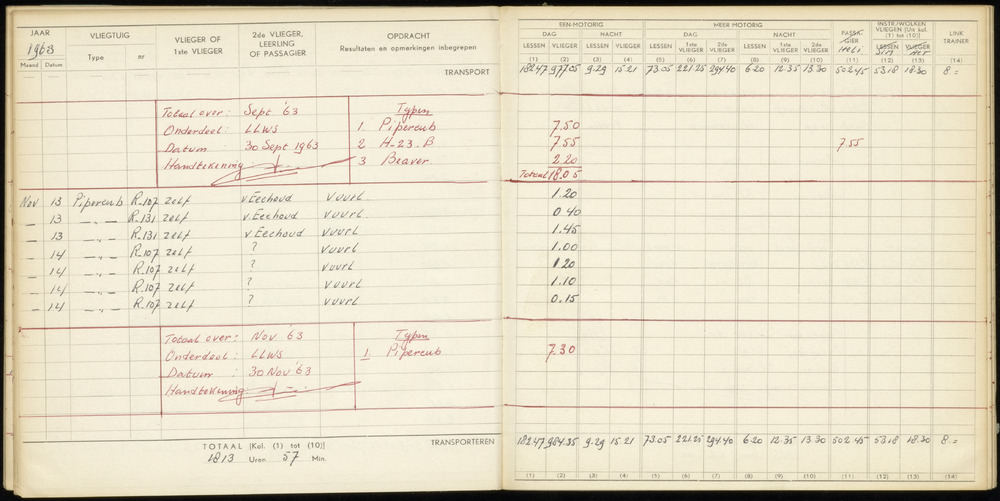 JAAR VLIEGTUIG VLIEGER OF 1ste VLIEGER 2de VLIEGER, LEERLING OF PASSAGIER OPDRACHT Resultaten en opmerkingen inbegrepen
1963 Type nr
Maand Datum
TRANSPORT
Totaal over: Sept '63 Typen
Onderdeel: LLWS 1 Pipercub
Datum: 30 Sept 1963 2 H-23.B
Handtekening 3 Beaver
Nov 13 Pipercub R.107 zelf v. Eechoud vuurl.
— 13 —„— R.131 zelf v. Eechoud vuurl
— 13 —„— R.131 zelf v. Eechoud vuurl
— 14 —„— R.107 zelf ? vuurl
— 14 —„— R.107 zelf ? vuurl
— 14 —„— R.107 zelf ? vuurl
— 14 —„— R.107 zelf ? vuurl
Totaal over: Nov '63 Typen
Onderdeel: LLWS 1 Pipercub
Datum: 30 Nov '63
Handtekening:
TOTAAL [Kol. (1) tot (10)] TRANSPORTEREN
1813 Uren 57 Min.
EEN-MOTORIG MEER MOTORIG PASSA-GIER Heli INSTR/WOLKEN VLIEGEN [Uit kol. (1) tot (10)] LINK TRAINER
DAG NACHT DAG NACHT
LESSEN VLIEGER LESSEN VLIEGER LESSEN 1ste VLIEGER 2de VLIEGER LESSEN 1ste VLIEGER 2de VLIEGER LESSEN Sim VLIEGER Act
(1) (2) (3) (4) (5) (6) (7) (8) (9) (10) (11) (12) (13) (14)
182.47 977.05 9.29 15.21 73.05 221.25 294.40 6.20 12.35 13.30 502.45 53.18 18.30 8.=
7.50
7.55 7.55
2.20
Totaal 18.05
1.20
0.40
1.45
1.00
1.20
1.10
0.15
7.30
182.47 984.35 9.29 15.21 73.05 221.25 294.40 6.20 12.35 13.30 502.45 53.18 18.30 8.=
(1) (2) (3) (4) (5) (6) (7) (8) (9) (10) (11) (12) (13) (14)